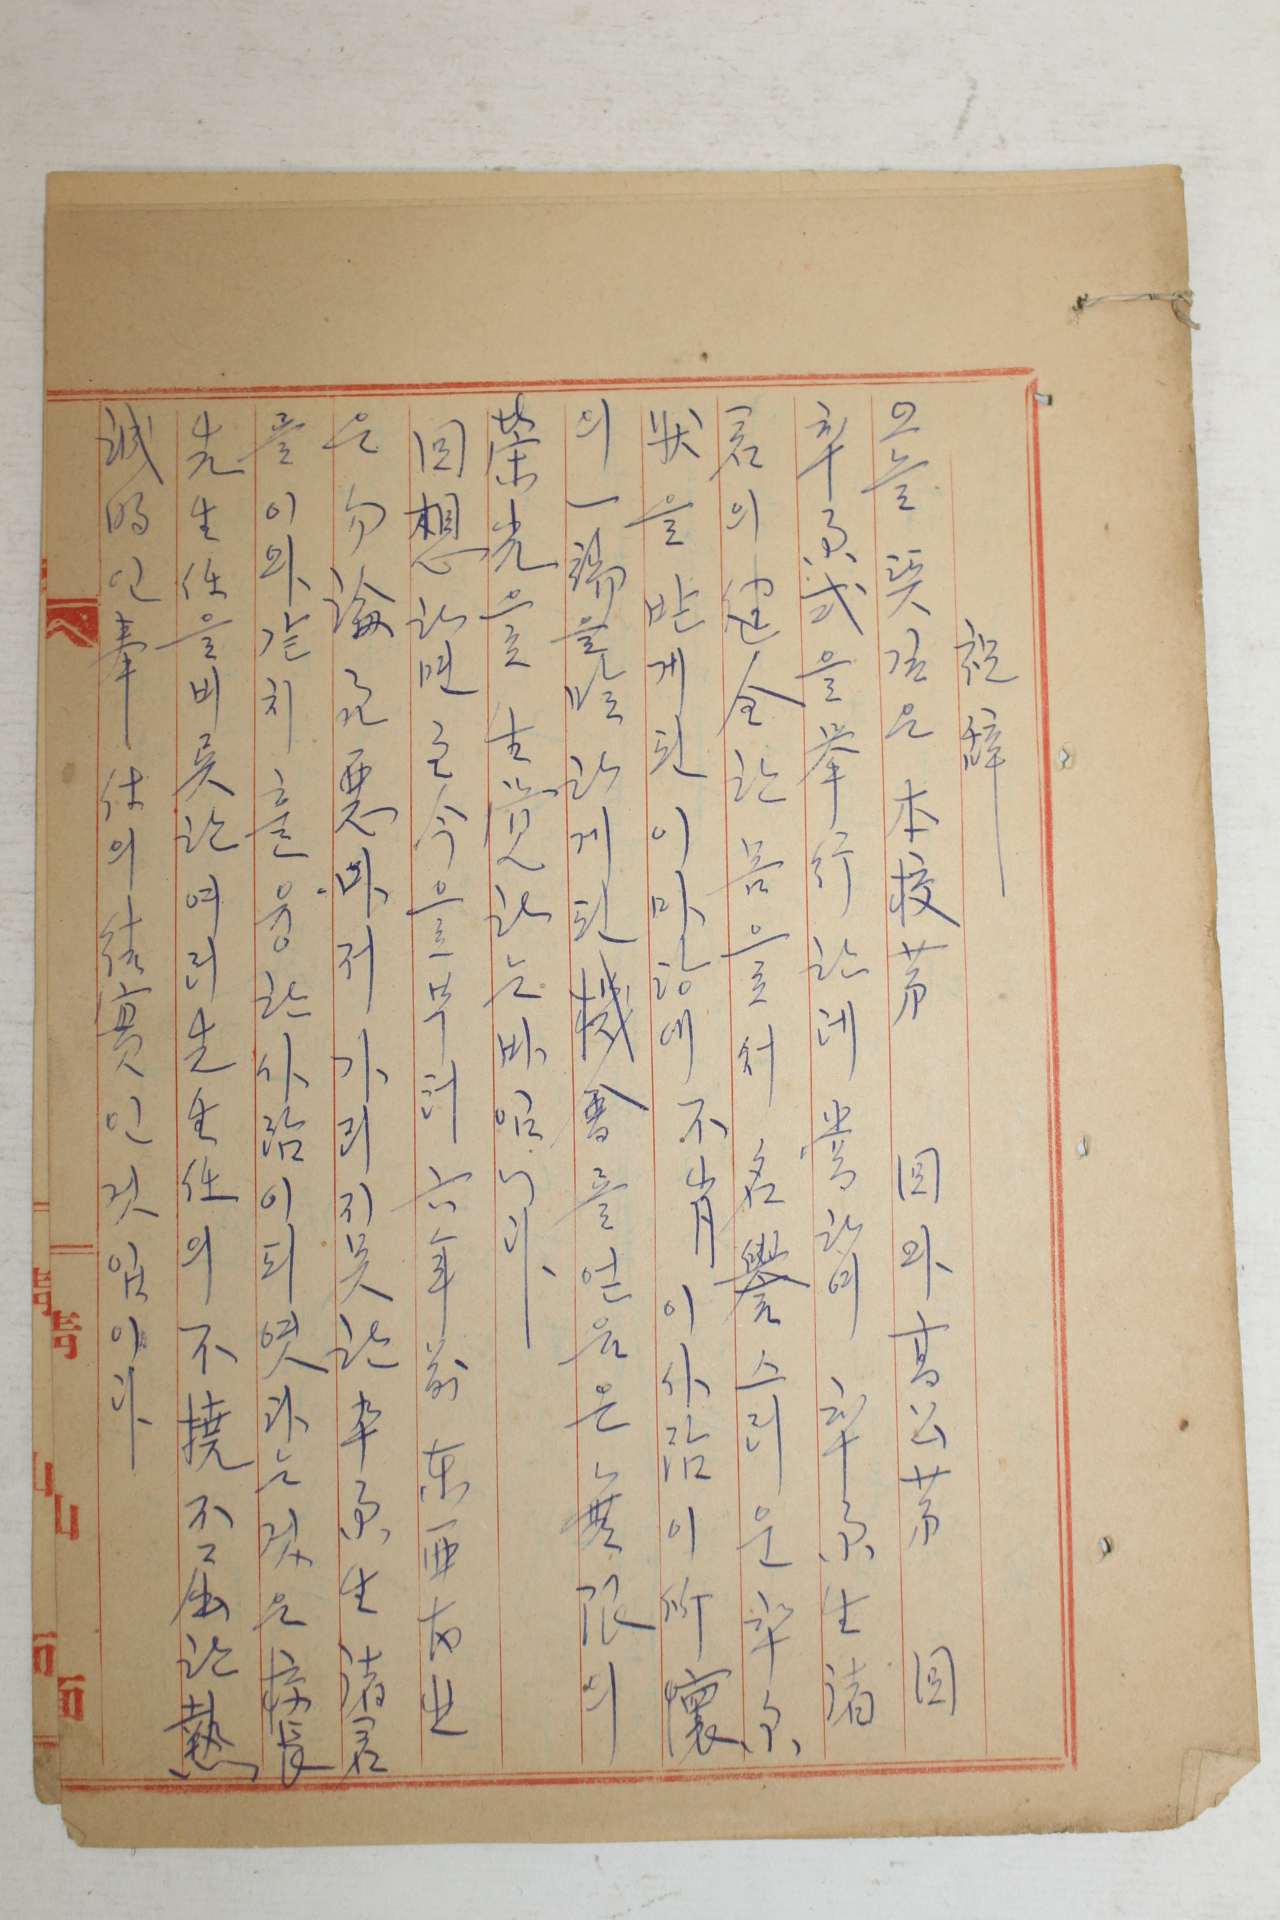 祝辞
오늘 뜻깊은 本校 第 回와 高公第 回
卒業式을 挙行한데 當하여 卒業生 諸
君의 健全한 몸으로서 名譽스러운 卒業
狀을 받게된 이마당에 不肖 이사람이 所懷
의 一端을 말하게된 機會를 얻음은 無限의
榮光으로 生覚하는바입니다
回想하면 至今으로부터 六年前 東西
은 勿論 조차 가리지못한 卒業生 諸君
들이 와같치 훌융한 사람이 되엿다는것은 校長
先生任을 비롯한 여러先生任의 不撓不屈한 熱
誠的인 奉仕의 結實인것임이다
靑山面